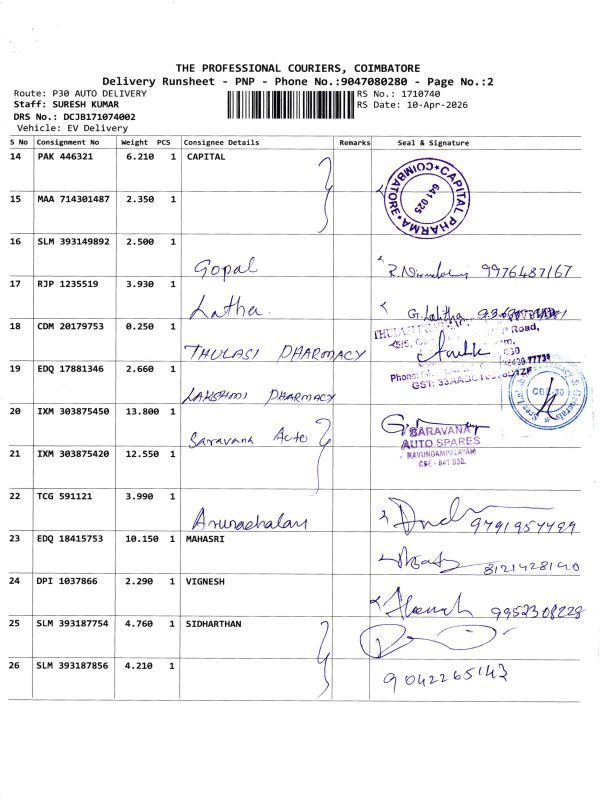 THE PROFESSIONAL COURIERS, COIMBATORE
Delivery Runsheet - PNP - Phone No.:9047080280 - Page No.:2
Route: P30 AUTO DELIVERY
RS No.: 1710740
Staff: SURESH KUMAR
RS Date: 10-Apr-2026
DRS No.: DCJB171074002
Vehicle: EV Delivery
S No Consignment No Weight PCS Consignee Details Remarks Seal & Signature
14 PAK 446321 6.210 1 CAPITAL
CAPITAL PHARMA COIMBATORE 641 025
15 MAA 714301487 2.350 1
16 SLM 393149892 2.500 1 Gopal 9976487167
17 RJP 1235519 3.930 1 Latha. G. Lalitha
18 CDM 20179753 0.250 1 THULASI PHARMACY
THULASI Road,
19 EDQ 17881346 2.660 1 LAKSHMI PHARMACY
Phone:
GST:
CBE-30
20 IXM 303875450 13.800 1 Saravana Acto
SARAVANA
AUTO SPARES
KAVUNDAMPALAYAM
CBE - 641 030.
21 IXM 303875420 12.550 1
22 TCG 591121 3.990 1 Arunachalam 9791957499
23 EDQ 18415753 10.150 1 MAHASRI 8121428140
24 DPI 1037866 2.290 1 VIGNESH 9952308228
25 SLM 393187754 4.760 1 SIDHARTHAN
26 SLM 393187856 4.210 1 9042265143